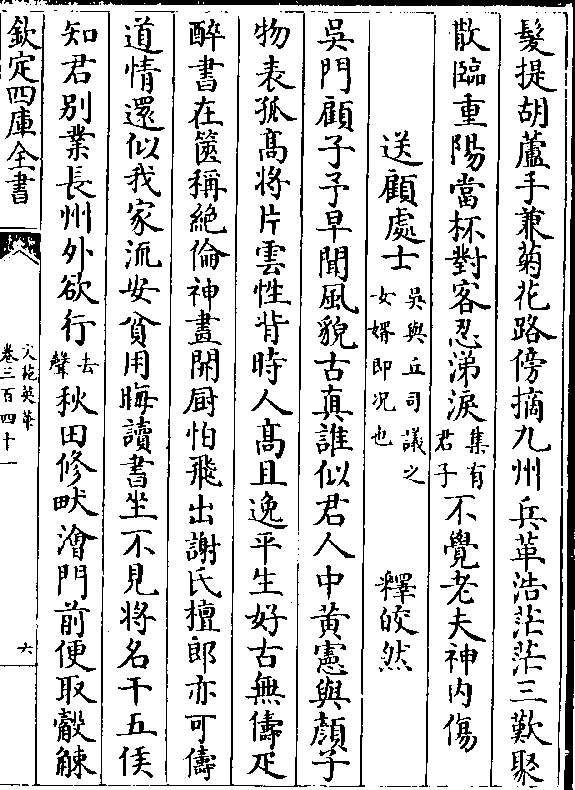 髮提胡蘆手兼菊花路傍摘九州兵革浩茫茫三歎聚
散臨重陽當杯對客忍涕淚集有君子不覺老夫神内傷
送顧處士吳與丘司議之女婿即况也 釋皎然
吳門顧子予早聞風貌古真誰似君人中黄憲與顔子
物表孤髙將片雲性背時人髙且逸平生好古無儔疋
醉書在篋稱絶倫神畫開厨怕飛出謝氏檀郎亦可儔
道情還似我家流安貧用晦讀書坐不見將名干五侯
知君别業長州外欲行去聲秋田修畎澮門前便取觳觫
欽定四庫全書
文苑英華
卷三百四十一
六